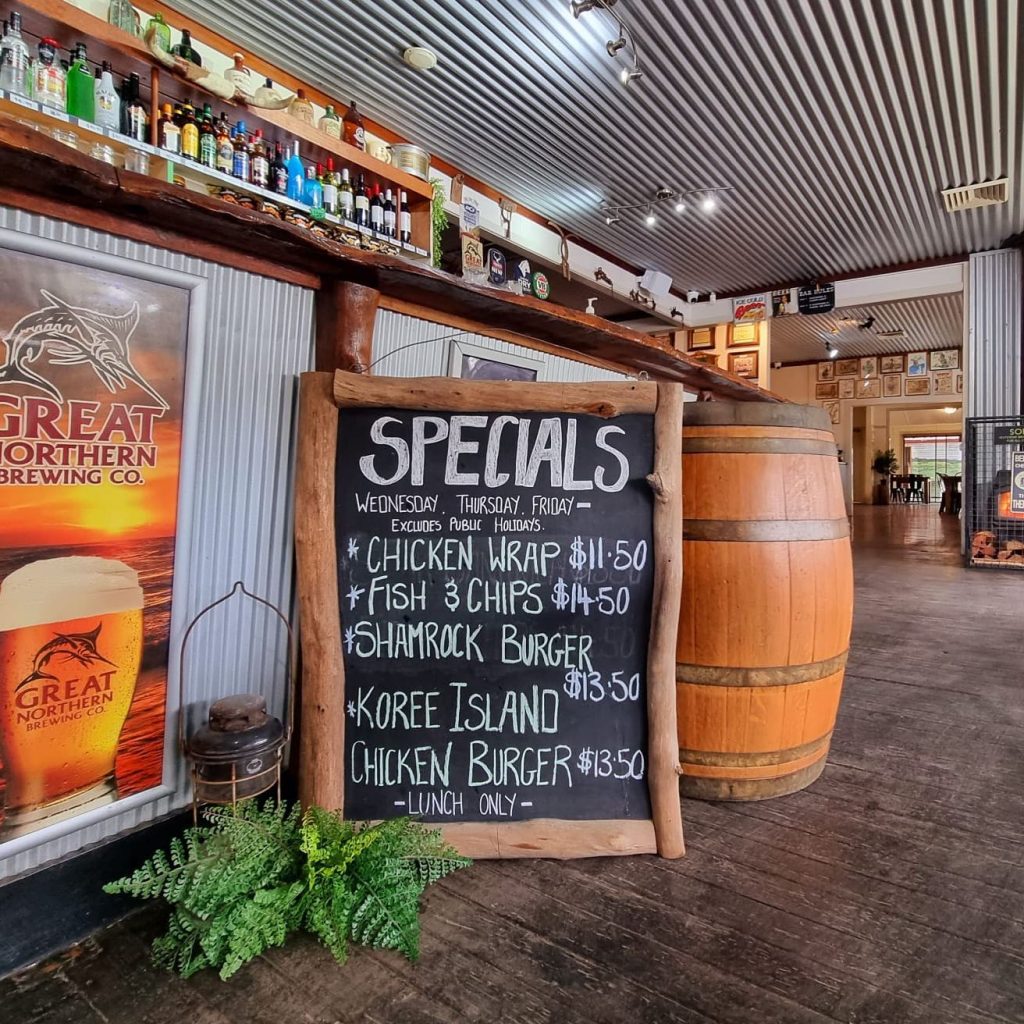 GREAT
NORTHERN
BREWING CO.
GREAT
NORTHERN
BREWING CO.
SPECIALS
WEDNESDAY, THURSDAY, FRIDAY-
EXCLUDES PUBLIC HOLIDAYS.
* CHICKEN WRAP $11.50
* FISH & CHIPS $14.50
* SHAMROCK BURGER
$13.50
* KOREE ISLAND
CHICKEN BURGER $13.50
- LUNCH ONLY -
ICE COLD
BEER